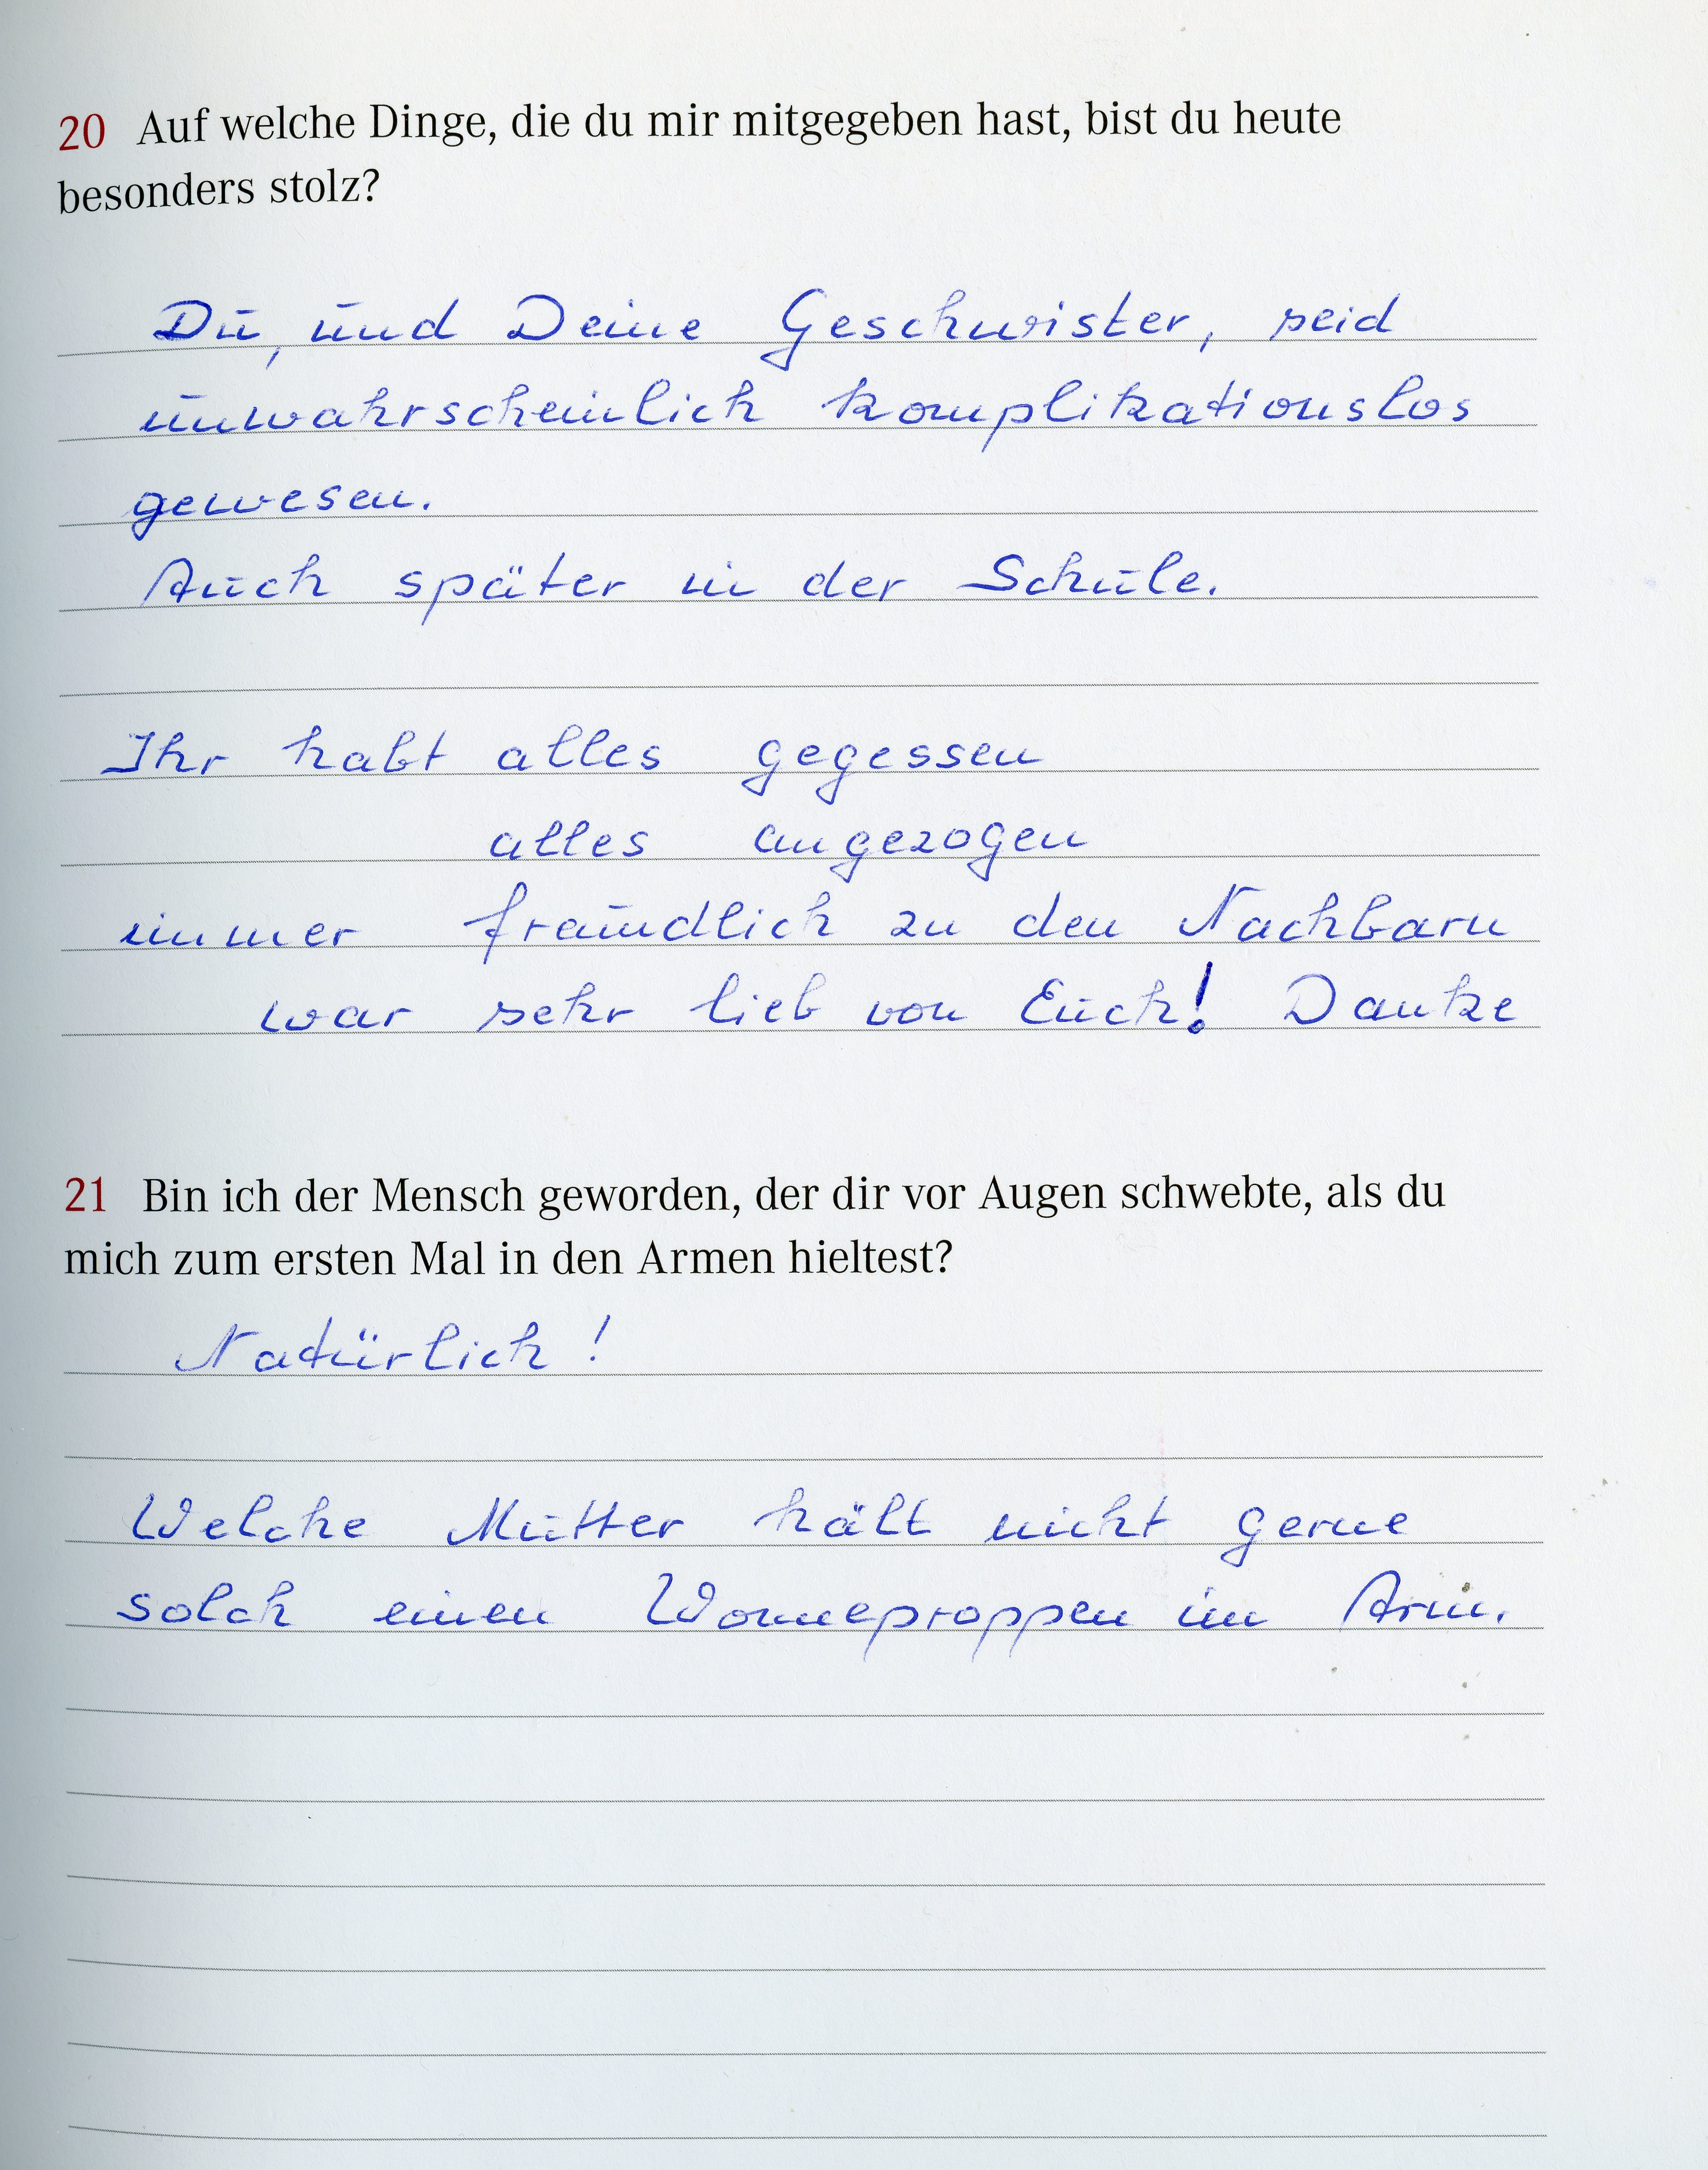 20 Auf welche Dinge, die du mir mitgegeben hast, bist du heute
besonders stolz?
Du, und Deine Geschwister, seid
unwahrscheinlich komplikationslos
gewesen.
Auch später in der Schule.
Ihr habt alles gegessen
alles angezogen
immer freundlich zu den Nachbarn
war sehr lieb von Euch! Danke
21 Bin ich der Mensch geworden, der dir vor Augen schwebte, als du
mich zum ersten Mal in den Armen hieltest?
Natürlich!
Welche Mutter hält nicht gerne
solch einen Wonneproppen im Arm.